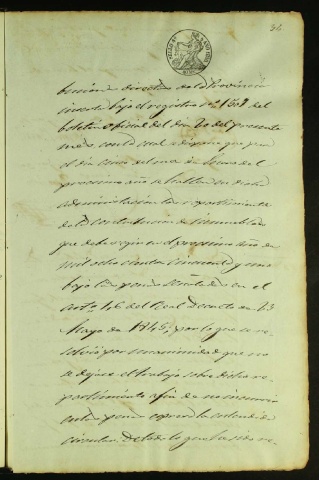 34
buciones directas de la Provincia
inserta bajo el registro nº 1501 del
boletin oficial del dia 20 del presente
mes con la cual se dispone que para
el dia cinco del mes de Enero del
procsimo año se hallen en dicha
administracion los repartimientos
de la contribucion de inmuebles
que debe regir en el procsimo año de
mil ocho cientos cincuenta y uno
bajo las penas señaladas en el
artº 46 del Real Decreto de 23
Mayo de 1845, por lo que se re-
solvió por unanimidad que no
se dejase el trabajo sobre dicho re-
partimiento afin de no incurrir
en las penas que espresa la citada
circular. De todo lo qual ha sido re-